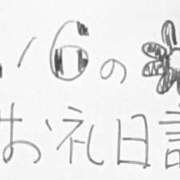 /6の
お礼日